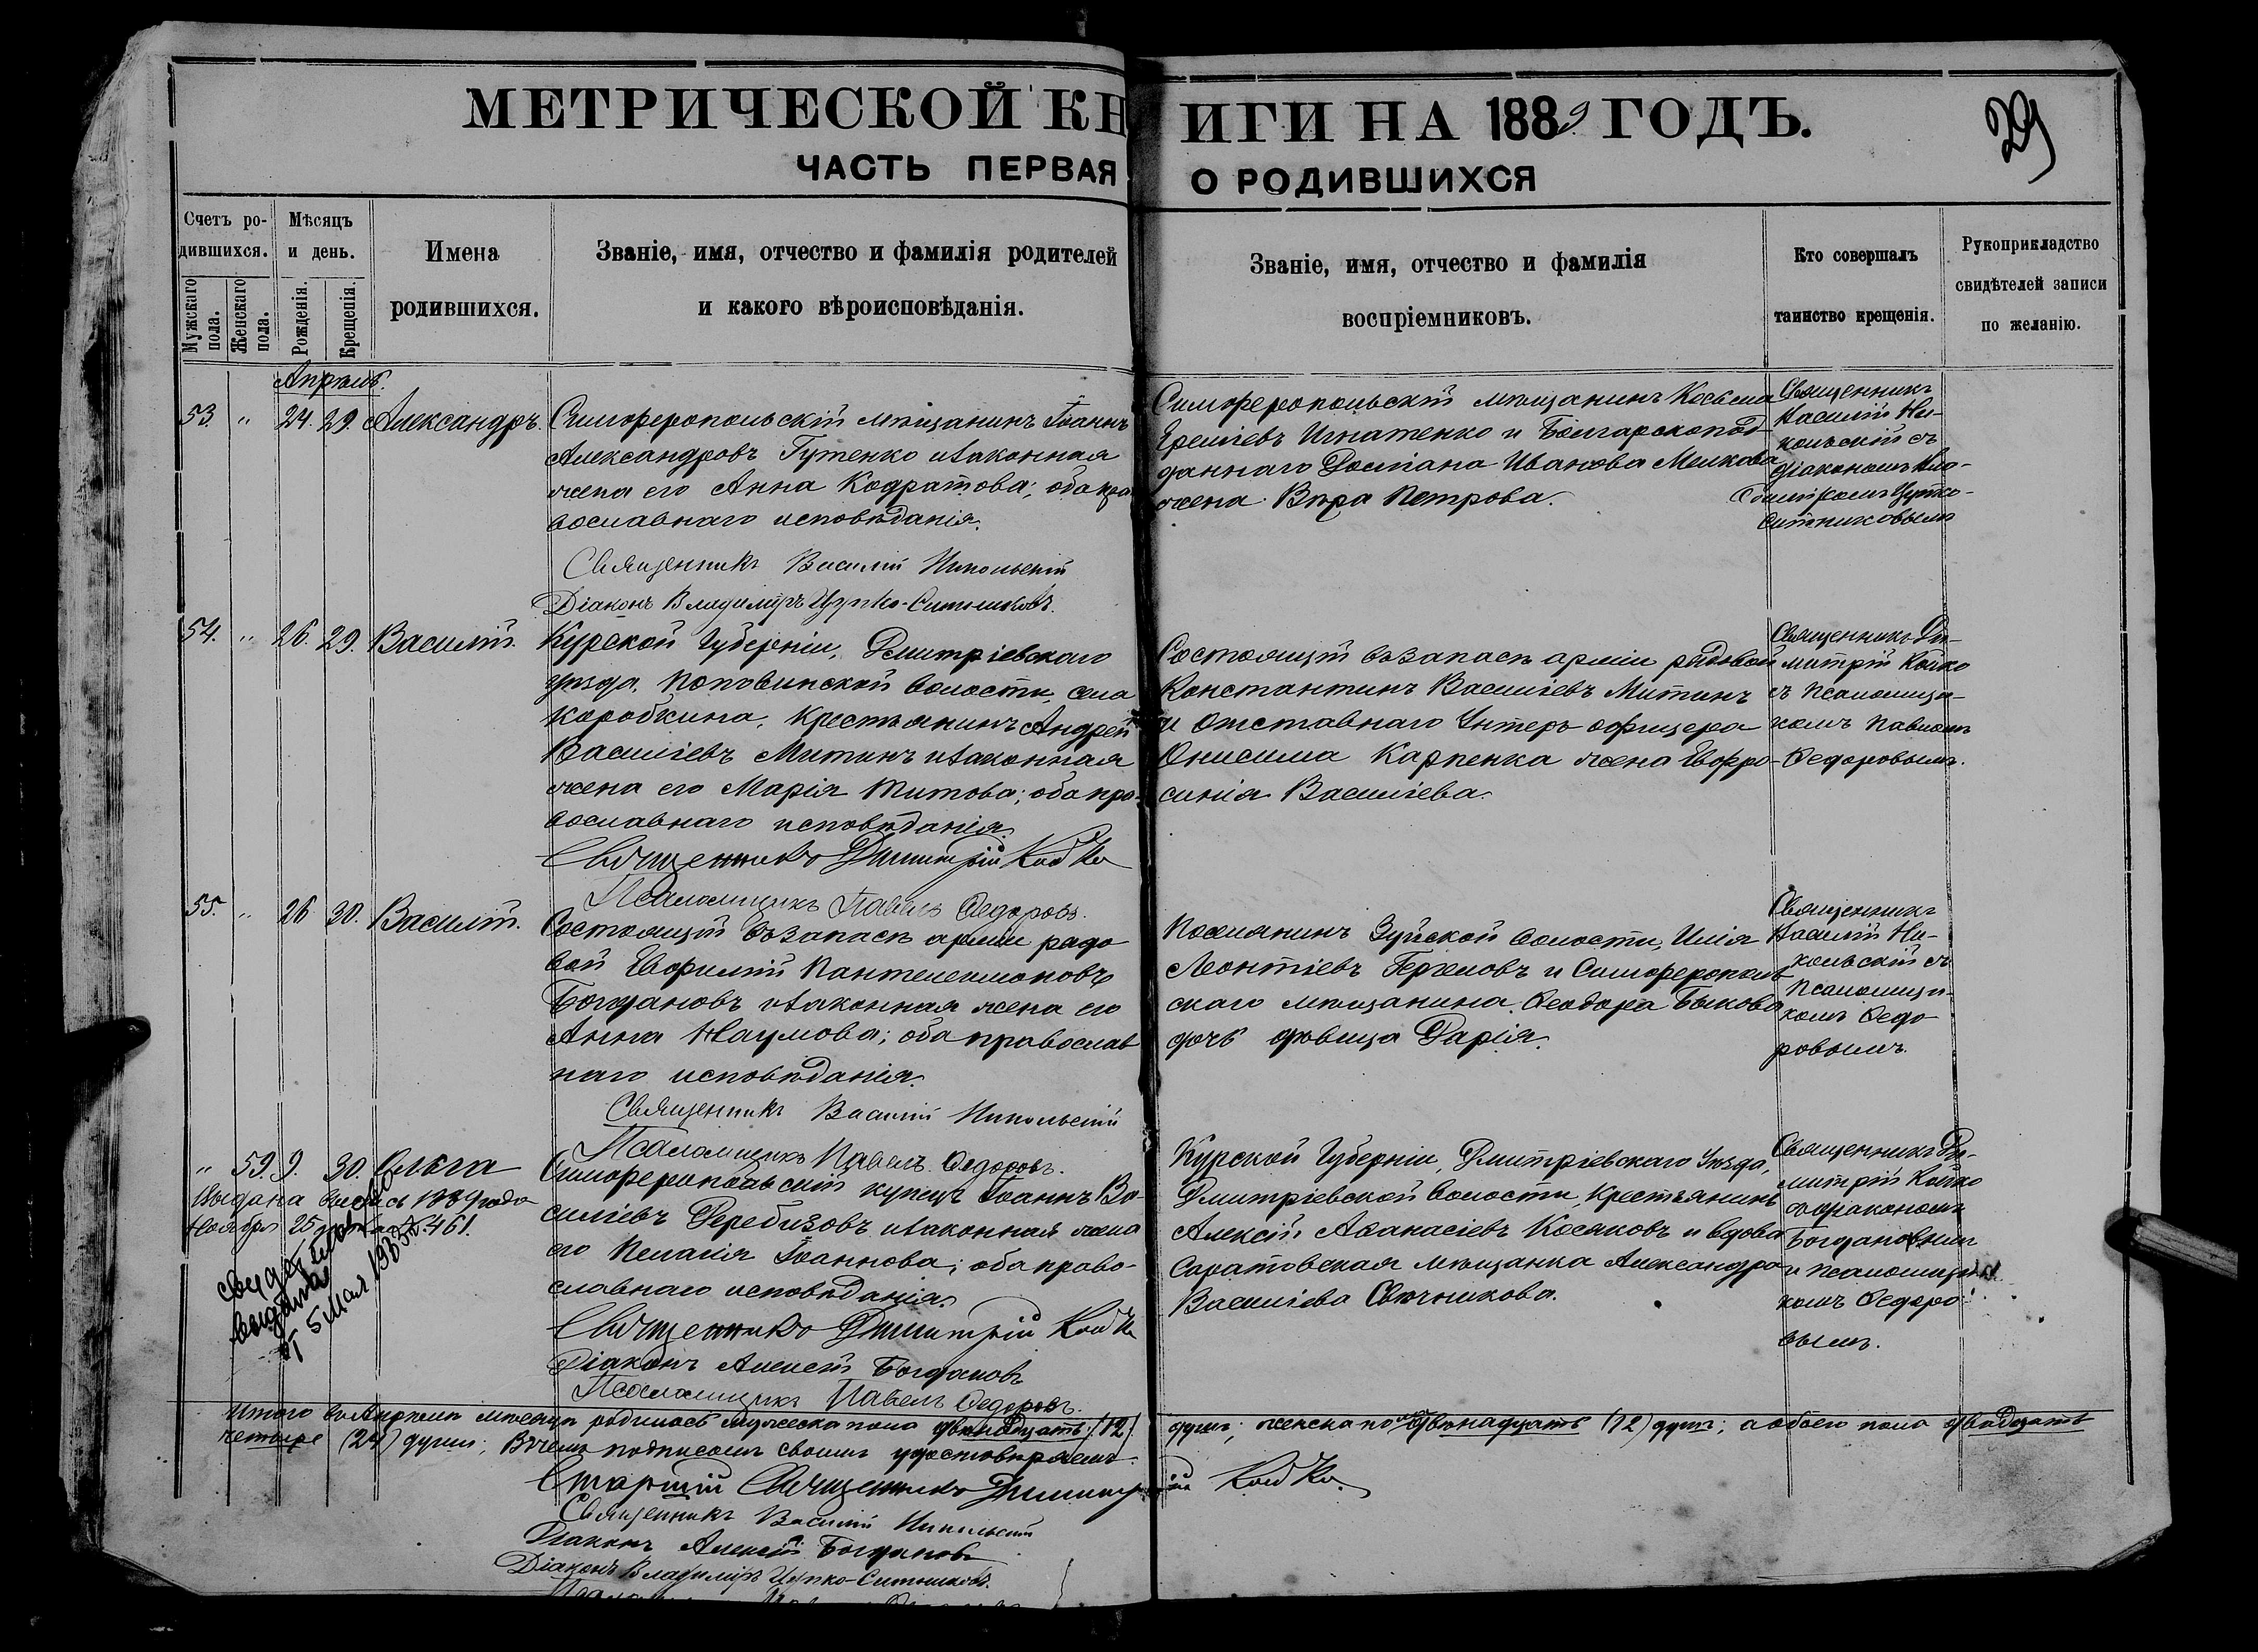 МЕТРИЧЕСКОЙ КНИГИ НА 1889 ГОДЪ.
29
ЧАСТЬ ПЕРВАЯ О РОДИВШИХСЯ
Счетъ ро-
дившихся.
Мужскаго
пола.
Женскаго
пола.
Мѣсяцъ
и день.
Рожденія.
Крещенія.
Имена
родившихся.
Званіе, имя, отчество и фамилія родителей
и какого вѣроисповѣданія.
Званіе, имя, отчество и фамилія
воспріемниковъ.
Кто совершалъ
таинство крещенія.
Рукоприкладство
свидѣтелей записи
по желанію.
Апрѣль.
53. " 24. 29. Александръ.
Симферопольскій мѣщанинъ Іоаннъ
Александровъ Гутенко и законная
жена его Анна Кодратова; оба пра
вославнаго исповѣданія.
Священникъ Василій Никольскій
Діаконъ Владиміръ Цупко-Ситниковъ.
Симферопольскій мѣщанинъ Косьма
Ереміевъ Игнатенко и Болгарскопод
даннаго Даміана Иванова Мелкова
жена Вѣра Петрова.
Священникъ
Василій Ни-
кольскій съ
діакономъ Вла-
диміромъ Цупко-
Ситниковымъ
54. " 26. 29. Василій.
Курской Губерніи, Дмитріевскаго
уѣзда, Поповкинской волости, села
Коробкина, крестьянинъ Андрей
Василіевъ Митинъ и законная
жена его Марія Титова; оба пра-
вославнаго исповѣданія.
Священникъ Димитрій Койко
Псаломщикъ Павелъ Ѳедоровъ.
Состоящій въ запасѣ арміи рядовой
Константинъ Василіевъ Митинъ
и отставнаго Унтеръ офицера
Онисима Карпенка жена Евфро-
синія Василіева.
Священникъ Ди-
митрій Койко
съ псаломщи-
комъ Павломъ
Ѳедоровымъ.
55. " 26 30. Василій.
Состоящій въ запасѣ арміи рядо
вой Евфимій Пантелеимоновъ
Богдановъ и законная жена его
Анна Наумова; оба православ
наго исповѣданія.
Священникъ Василій Никольскій
Псаломщикъ Павелъ Ѳедоровъ.
Поселянинъ Зуйской волости, Илія
Леонтіевъ Гергеловъ и Симферополь
скаго мѣщанина Ѳеодора Быкова
дочь дѣвица Дарія.
Священникъ
Василій Ни-
кольскій съ
псаломщи-
комъ Ѳедо
ровымъ.
" 59. 9. 30. Ольга
Выдана выпись 1889 года
Ноября 25 461.
выдана
5 мая 1935
Симферопольскій купецъ Іоаннъ Ва-
силіевъ Деребизовъ и законная жена
его Пелагія Іоаннова; оба право-
славнаго исповѣданія.
Священникъ Димитрій Койко
Діаконъ Алексій Богдановъ
Псаломщикъ Павелъ Ѳедоровъ.
Курской Губерніи, Дмитріевскаго Уѣзда,
Дмитріевской волости, крестьянинъ
Алексій Аѳанасіевъ Косяковъ и вдова
Саратовская мѣщанка Александра
Василіева Свѣчникова.
Священникъ Ди-
митрій Койко
съ діакономъ
Богдановымъ
и псаломщи
комъ Ѳедоро
вымъ.
Итого въ Апрѣлѣ мѣсяцѣ родилось мужеска пола двѣнадцать (12) душъ; женска пола двѣнадцать (12) душъ; а обоего пола двадцать
четыре (24) души; въ чемъ подписомъ своимъ удостовѣряемъ.
Старшій Священникъ Димитрій Койко.
Священникъ Василій Никольскій
Діаконъ Алексій Богдановъ
Діаконъ Владиміръ Цупко-Ситниковъ.